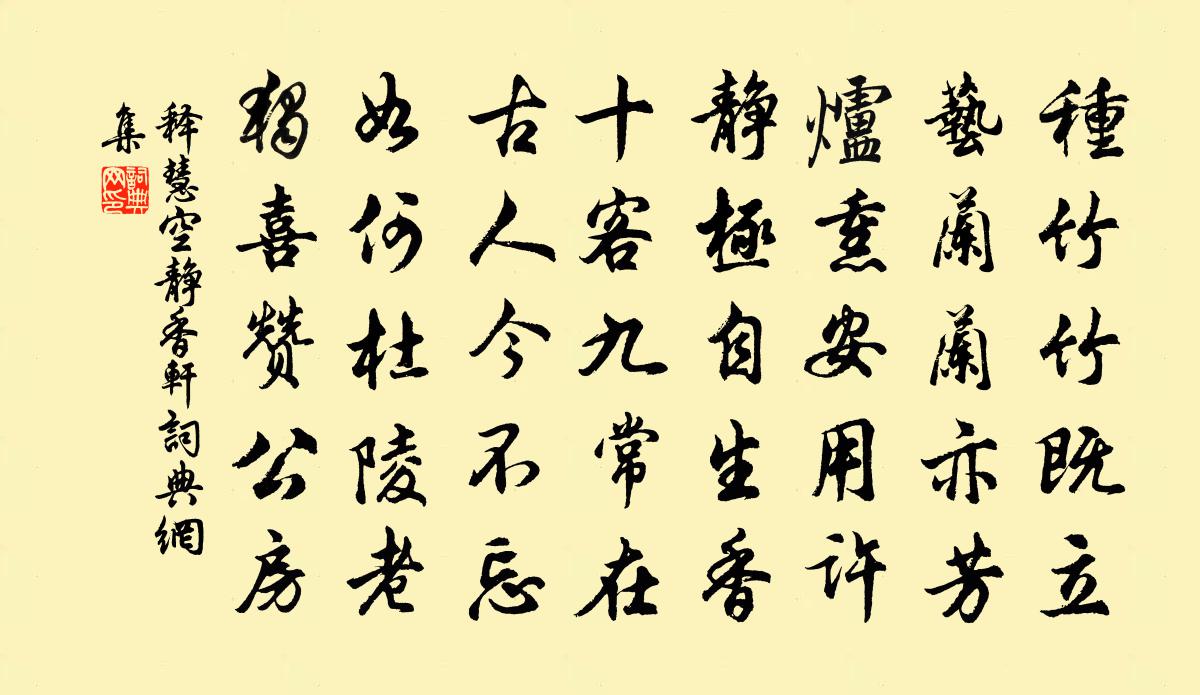 種竹竹既立
藝蘭蘭亦芳
爐熏安用許
静極自生香
十客九常在
古人今不忘
如何杜陵老
獨喜贊公房
释慧空静香軒詞典網
集
詞典網印